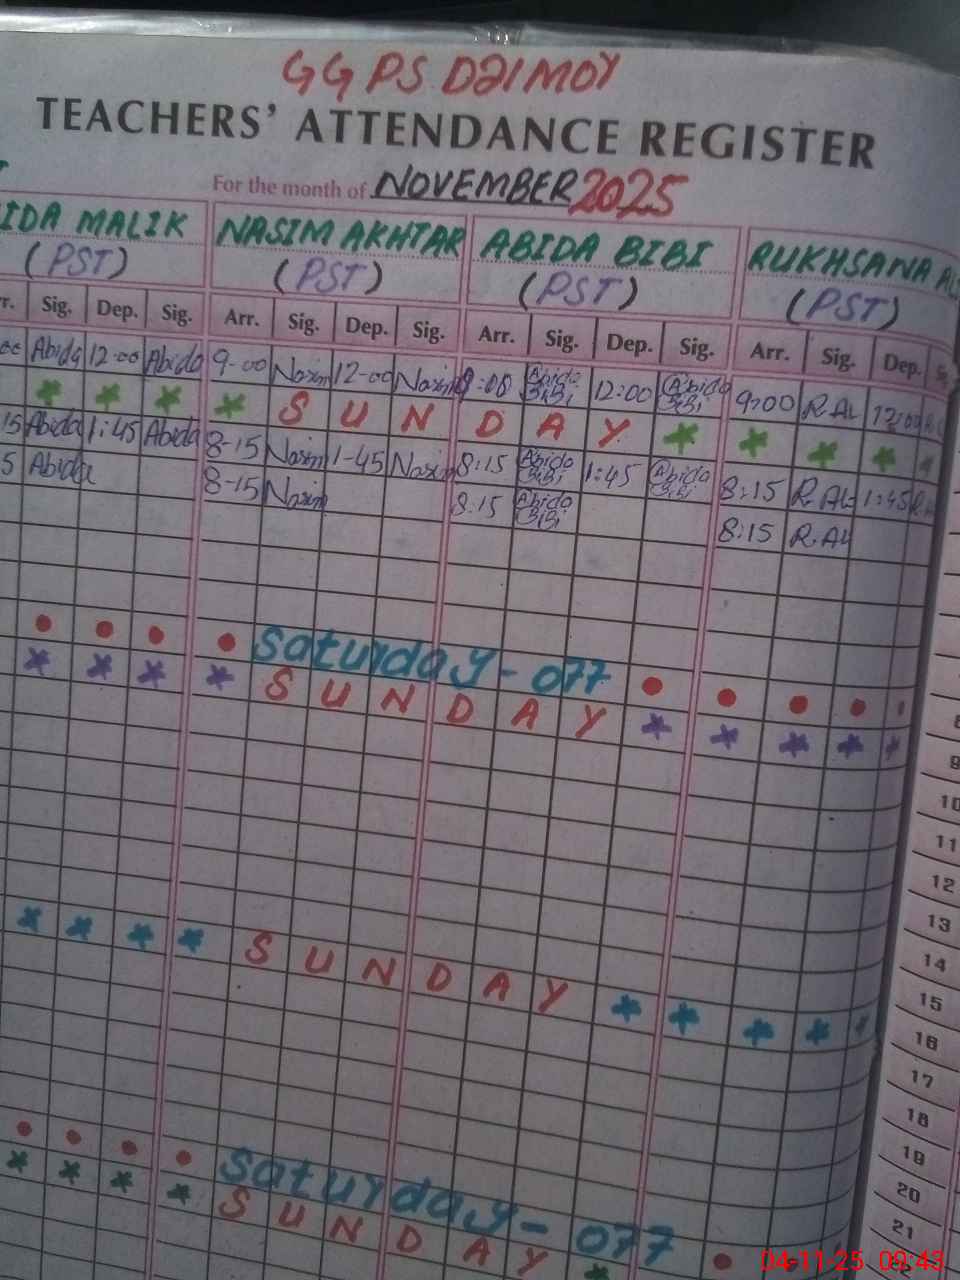 GGPS Dalmoy
TEACHERS' ATTENDANCE REGISTER
For the month of NOVEMBER 2025
IDA MALIK NASIM AKHTAR ABIDA BIBI RUKHSANA
(PST) (PST) (PST) (PST)
Sig. Dep. Sig. Arr. Sig. Dep. Sig. Arr. Sig. Dep. Sig. Arr. Sig. Dep.
Abida 12-00 Abida 9-00 Nasim 12-00 Nasim 9:00 Abida Bibi 12:00 Abida Bibi 9:00 R.AL 12:00
SUNDAY
15 Abida 1:45 Abida 8-15 Nasim 1-45 Nasim 8:15 Abida Bibi 1:45 Abida Bibi 8:15 R.AL 1:45
5 Abida 8-15 Nasim 8:15 Abida Bibi 8:15 R.AL
Saturday-off
SUNDAY
9
10
11
12
13
14
SUNDAY
15
16
17
18
19
20
21
Saturday-off
SUNDAY
04-11-25 09:43